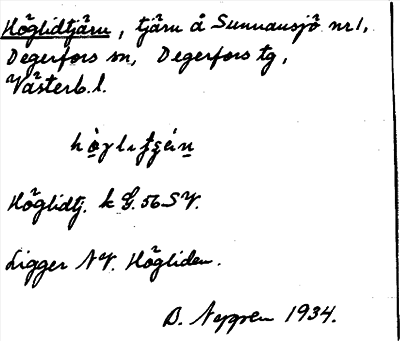 Höglidtjärn, tjärn å Sunnansjö nr 1,
Degerfors sn, Degerfors tg,
Västerb. l.
Höglidtj. k G. 56 SV.
Ligger NV. Högliden.
B. Nygren 1934.